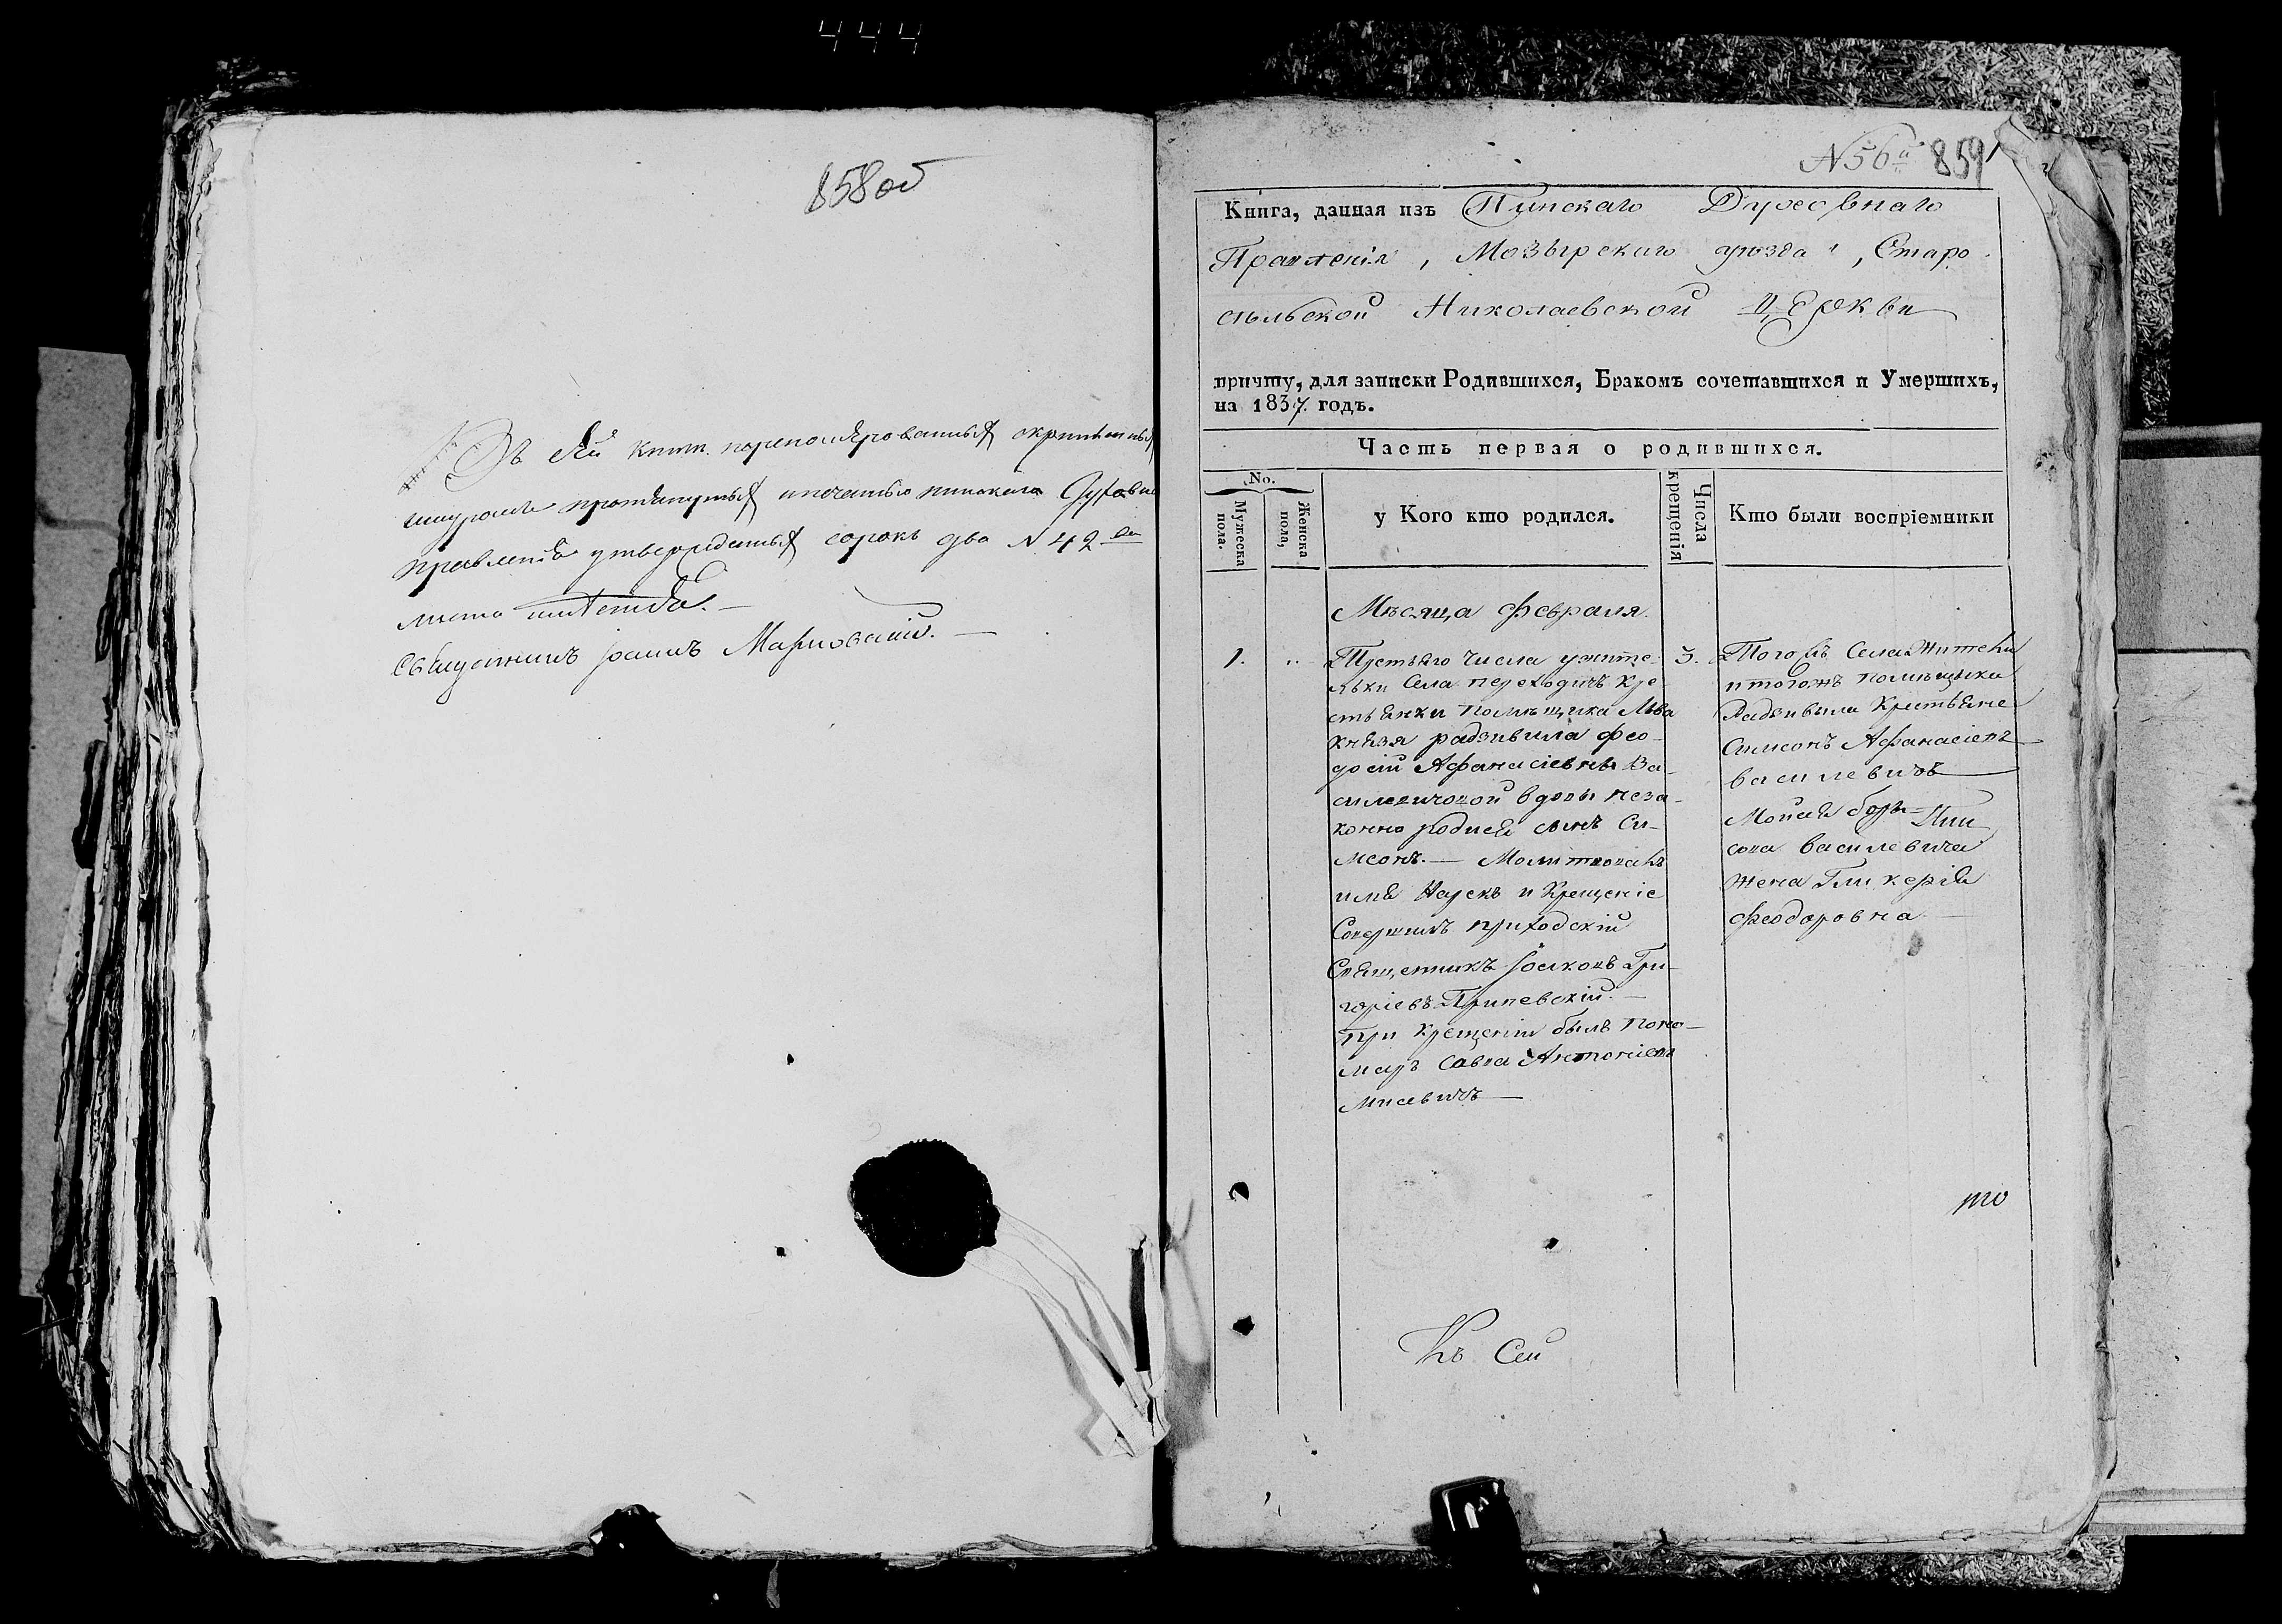 444
858об
Въ сей книги переномерованныхъ скрепленныхъ
шнуромъ протянутыхъ и печатью пинскаго Духовна
правленія утвержденныхъ сорокъ два N 42 ва
листа
Священникъ Іоаннъ
N 56й 859
Книга, данная изъ Пинскаго Духовнаго
Правленія, Мозырскаго уѣзда, Старо
сѣльской Николаевской Церкви
причту, для записки Родившихся, Бракомъ сочетавшихся и Умершихъ,
на 1837 годъ.
Часть первая о родившихся.
No.
Мужеска пола.
Женска пола,
у Кого кто родился.
Числа крещенія
Кто были воспріемники
Мѣсяца Февраля.
1. „ Третьяго числа ужите-
льки Села переходичъ кре-
стьянки помѣщика Льва
Князя радзивила Фео-
досіи Афанасіевны Ва-
силевичовой вдовы неза-
конно родися сынъ Си-
меонъ. — Молитвовалъ
имя Нарекъ и Крещеніе
Совершилъ приходскій
Священникъ Іаковъ Гри-
горіевъ —
При Крещеніи былъ Поно-
марь Савва Антоніевъ
Мисевичъ —
3. Того жъ Села жители
и тогожъ помѣщика
Радзивила Крестьяне
Симеонъ Афанасіевъ
Василевичъ
Моисея
Василевича
жена Гликерія
Феодоровна —
то
Къ Сей